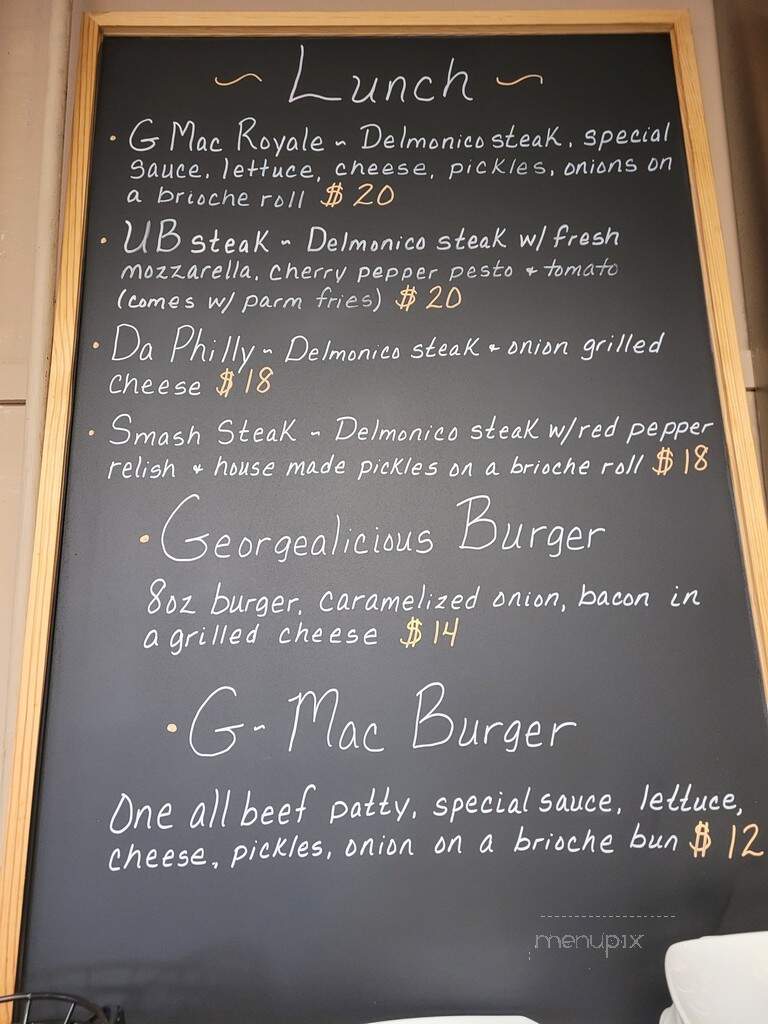 ~ Lunch ~
• G Mac Royale ~ Delmonico steak, special
sauce, lettuce, cheese, pickles, onions on
a brioche roll $20
• UB steak ~ Delmonico steak w/ fresh
mozzarella, cherry pepper pesto + tomato
(comes w/ parm fries) $20
• Da Philly ~ Delmonico steak + onion grilled
cheese $18
• Smash Steak ~ Delmonico steak w/ red pepper
relish + house made pickles on a brioche roll $18
• Georgealicious Burger
8oz burger, caramelized onion, bacon in
a grilled cheese $14
• G~Mac Burger
One all beef patty, special sauce, lettuce,
cheese, pickles, onion on a brioche bun $12
menupix